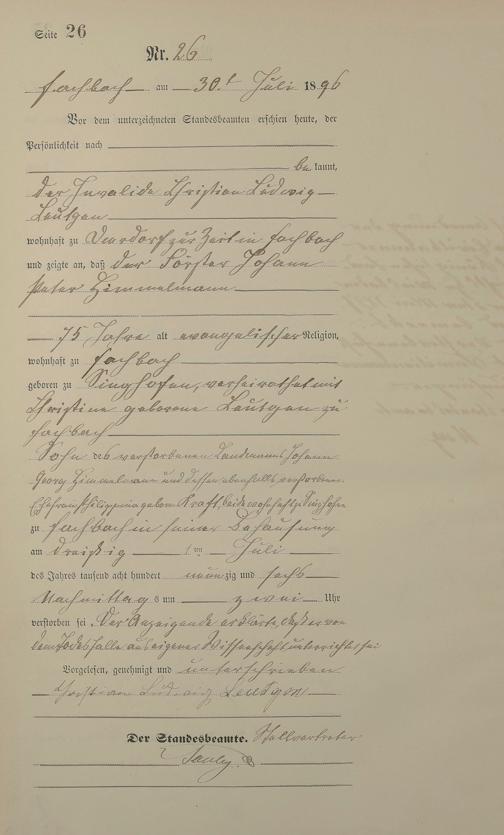 Seite 26
Nr. 26
Fachbach am 30.t Juli 1896
Vor dem unterzeichneten Standesbeamten erschien heute, der
Persönlichkeit nach
bekannt,
der Invalide Christian Ludwig
Leutgen
wohnhaft zu zur Zeit in Fachbach
und zeigte an, daß der Förster Johann
Peter Himmelmann
75 Jahre alt evangelischer Religion,
wohnhaft zu Fachbach
geboren zu Singhofen, verheirathet mit
Christine geborene Leutgen zu
Fachbach
Sohn des verstorbenen Landmanns Johann
Georg Himmelmann und dessen ebenfalls verstorbenen
Ehefrau Philippina geborn. Kraft, beide wohnhaft zu Singhofen
zu Fachbach in seiner Behausung
am dreißigten Juli
des Jahres tausend acht hundert neunzig und sechs
Nachmittags um zwei Uhr
verstorben sei. Der Anzeigende erklärte, daß er von
dem Todesfalle aus eigener Wissenschaft unterrichtet sei
Vorgelesen, genehmigt und unterschrieben
Christian Ludwig Leutgen
Der Standesbeamte. Stellvertreter